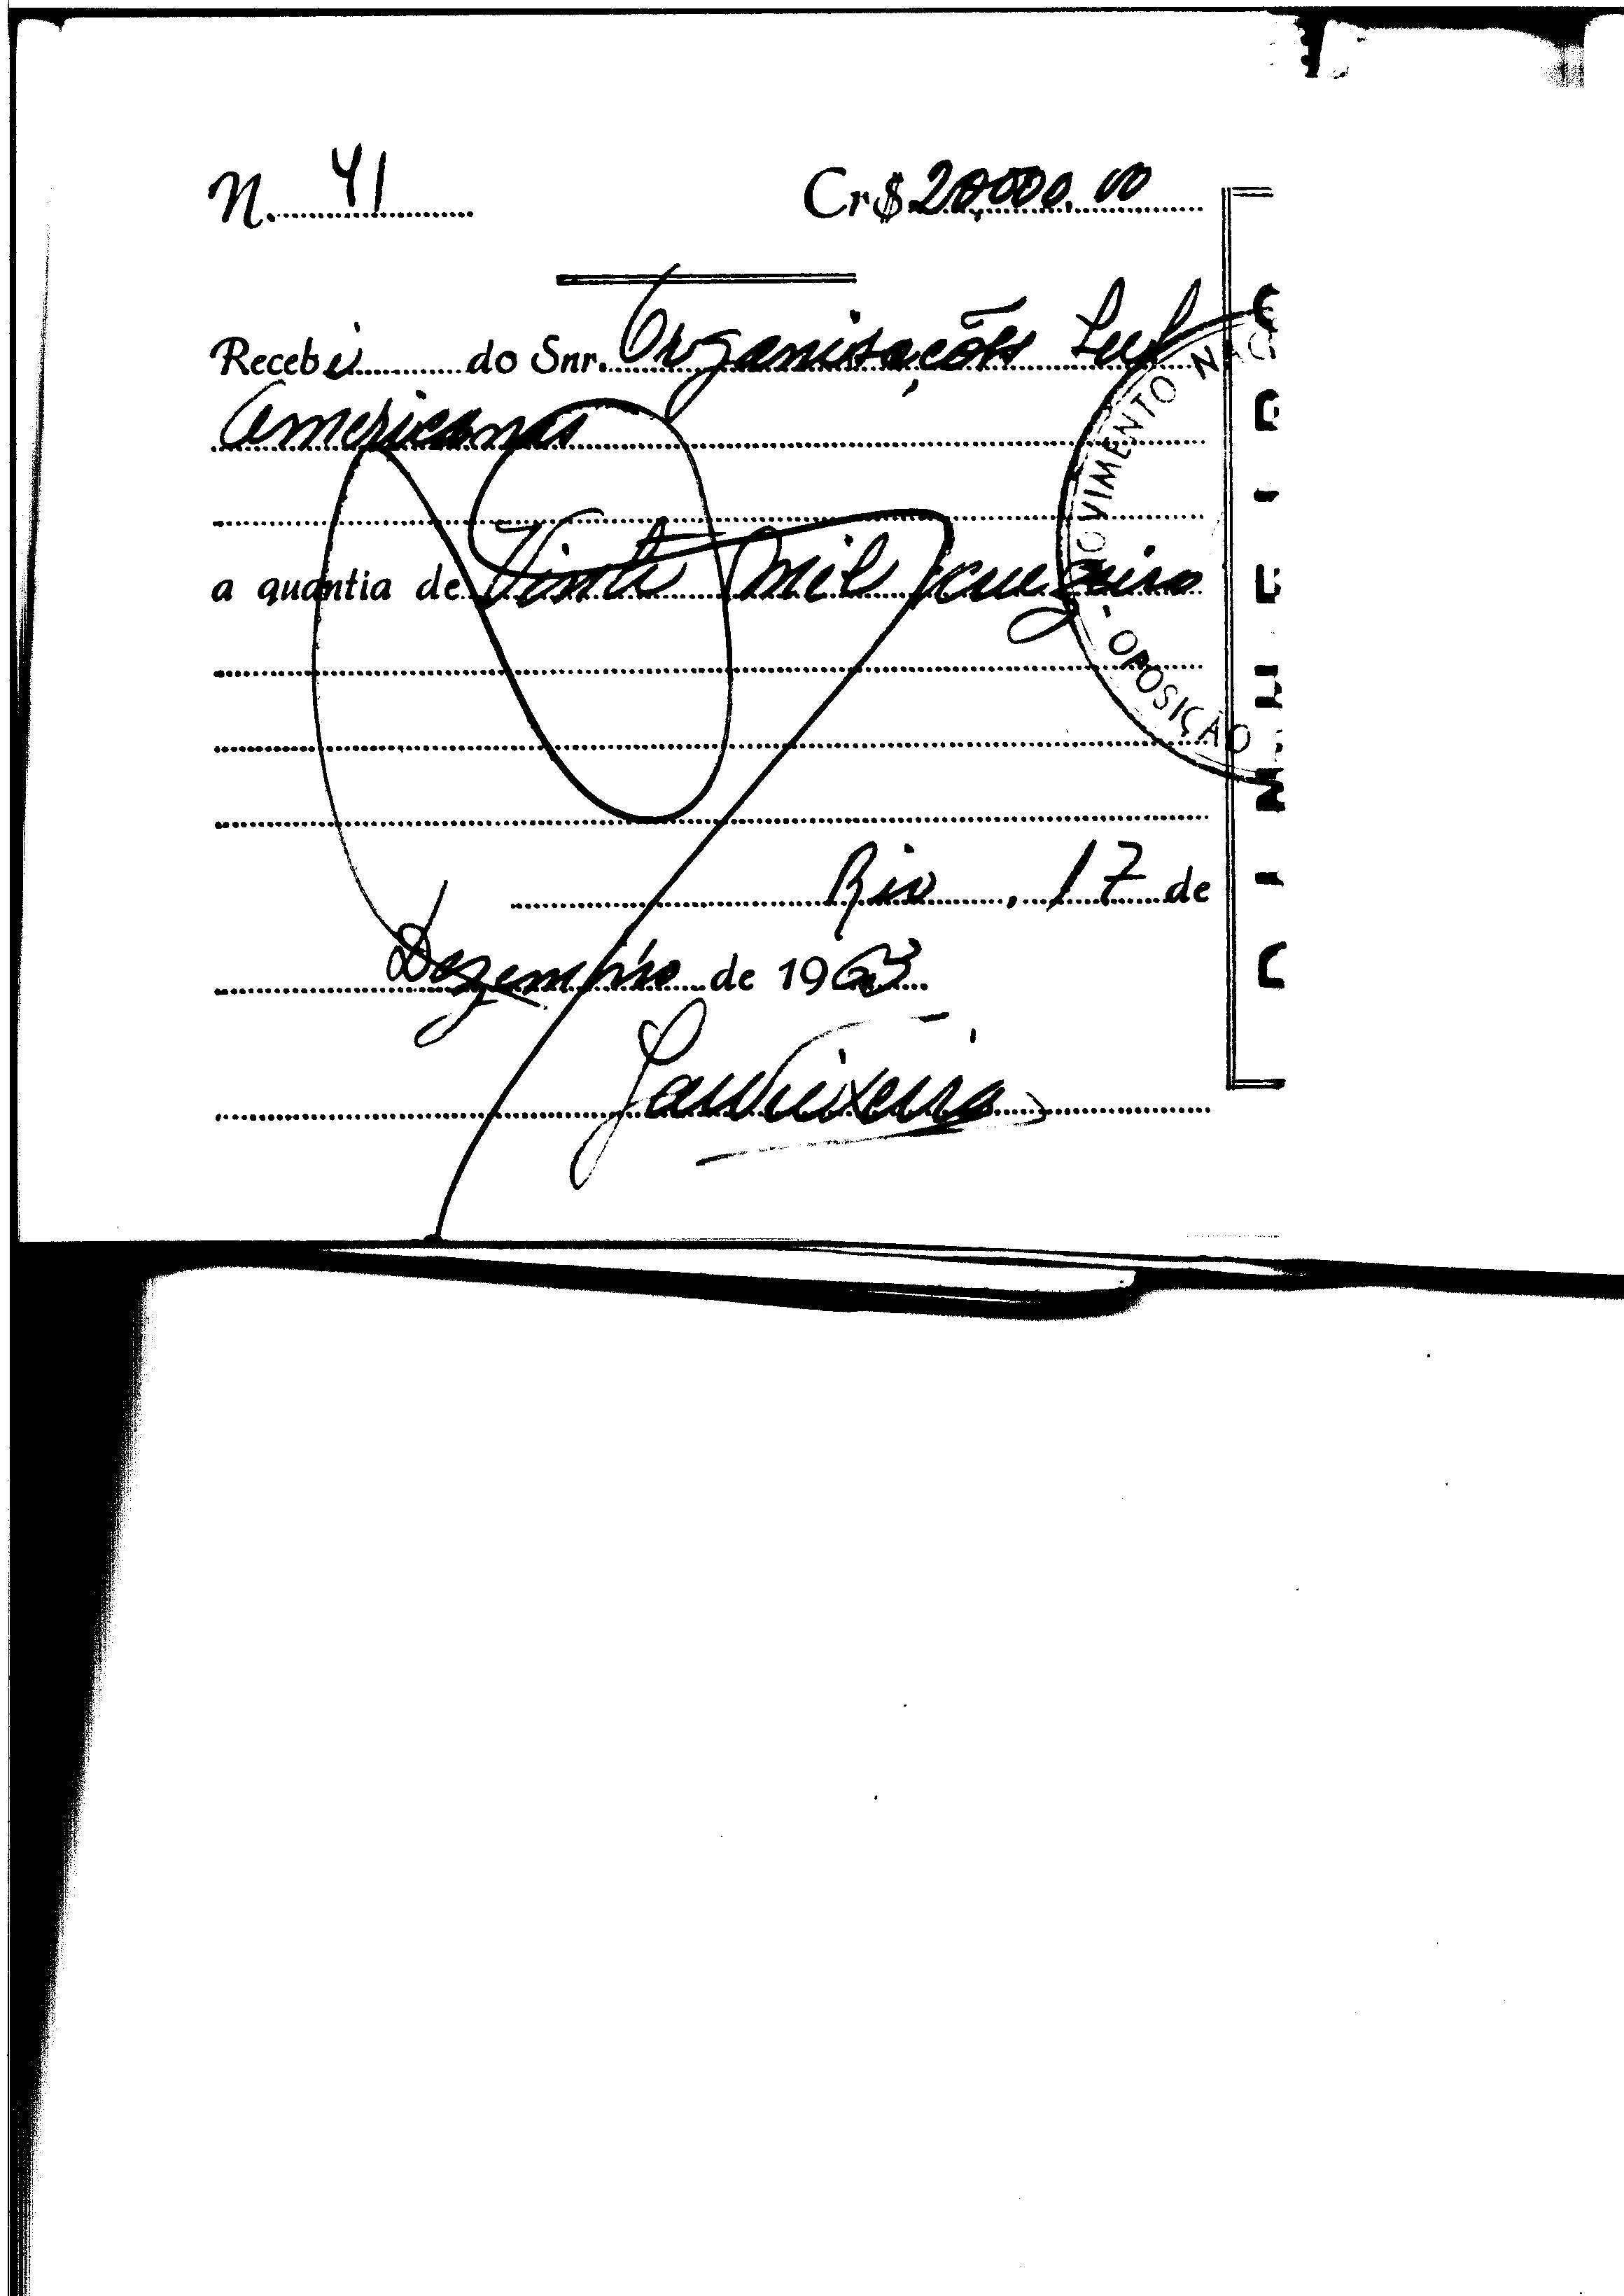 N. 41 Cr$ 20,000.00
Recebi do Snr. Organisações Sul
Americanas
a quantia de Vinte mil cruzeiros
Rio, 17 de
Dezembro de 1963
MOVIMENTO NAC
- OPOSIÇÃO